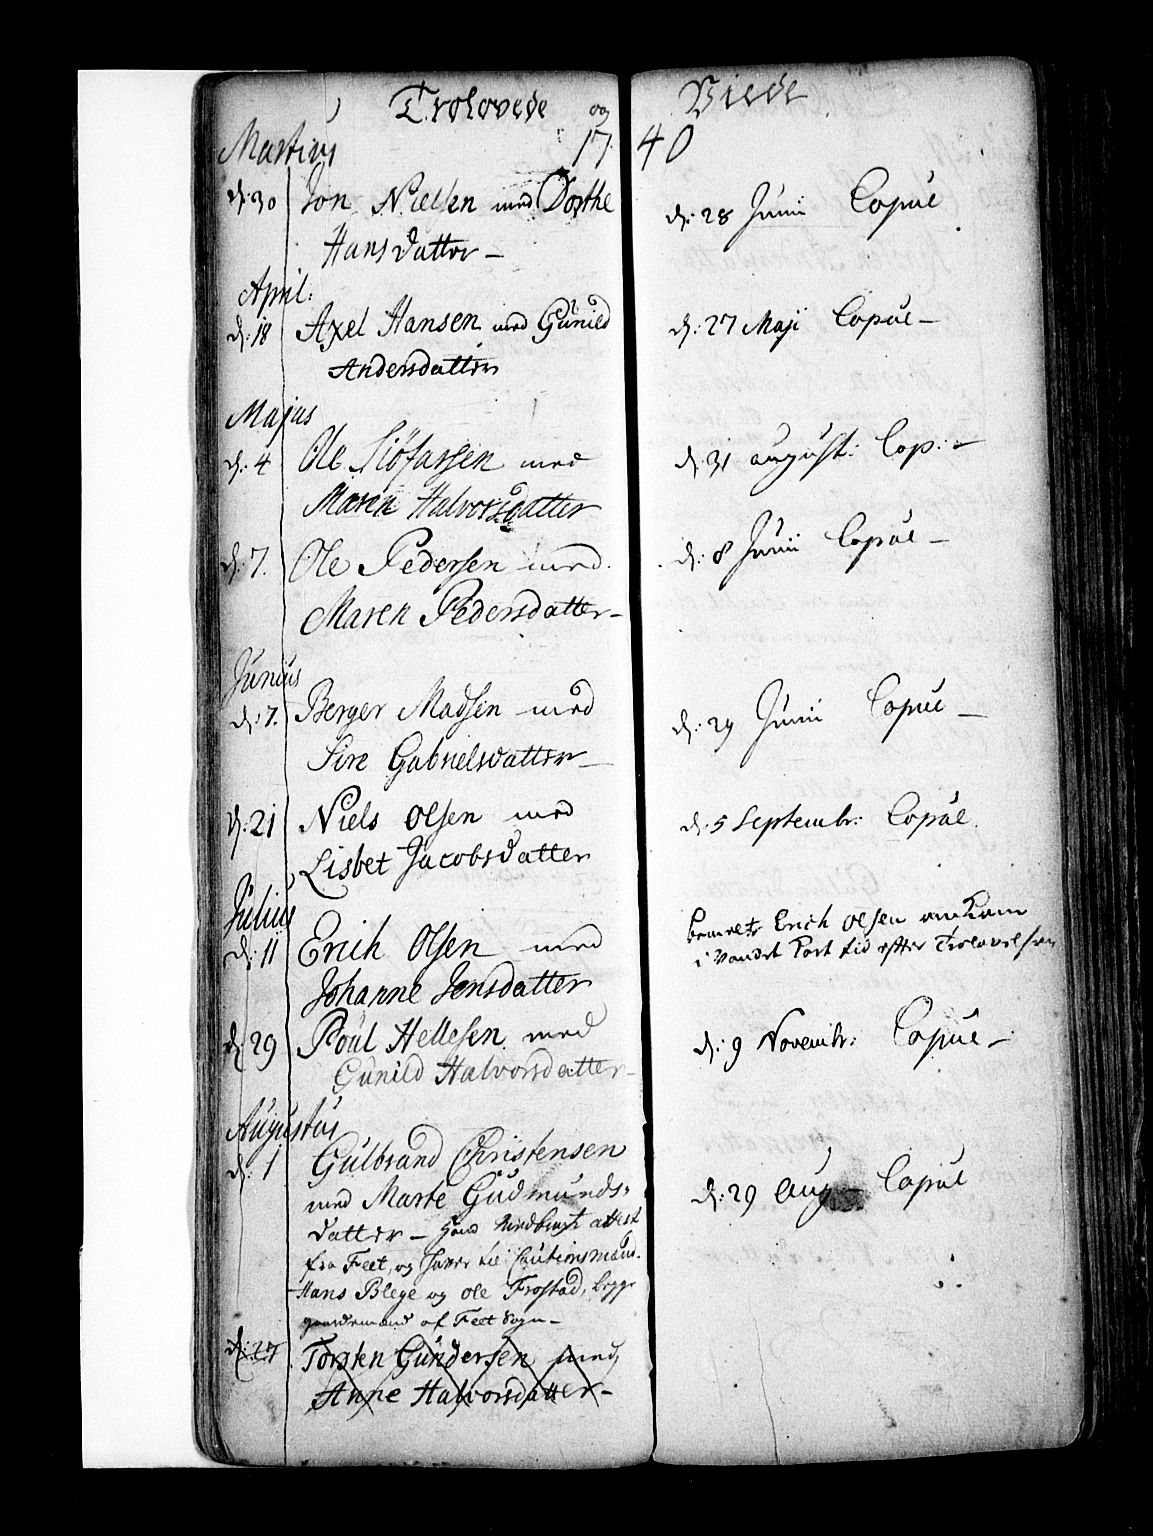 Trolovede og Viede
Martius 1740
d: 30 Jon Nielsen med Dorthe
Hansdatter – d: 28 Junii Copul
April:
d: 18 Axel Hansen med Gunild
Andersdatter d: 27 Maji Copul –
Majus
d: 4 Ole Siøfarsen med
Maren Halvorsdatter d: 31 august: Cop: –
d: 7. Ole Pedersen med
Maren Pedersdatter – d: 8 Junii Copul –
Junius
d: 7. Berger Madsen med
Sire Gabrielsdatter – d: 29 Junii Copul –
d: 21 Niels Olsen med
Lisbet Jacobsdatter d: 5 Septembr: Copul.
Julius
d: 11 Erich Olsen med
Johanne Jensdatter
bemelte Erich Olsen omkom
i Vandet kort tid efter Trolovelsen
d: 29 Poul Hellesen med
Gunild Halvorsdatter – d: 9 Novembr: Copul –
Augustus
d: 1 Gulbrand Christensen
med Marte Gudmunds-
datter – hand medbragt attest d: 29 Aug – Copul
fra Feet, og haver til Cautionsmænd
Hans Blege og Ole Frostad, begge
gaardemænd af Feet Sogn –
d: 27 Torsten Gundersen med
Anne Halvorsdatter –